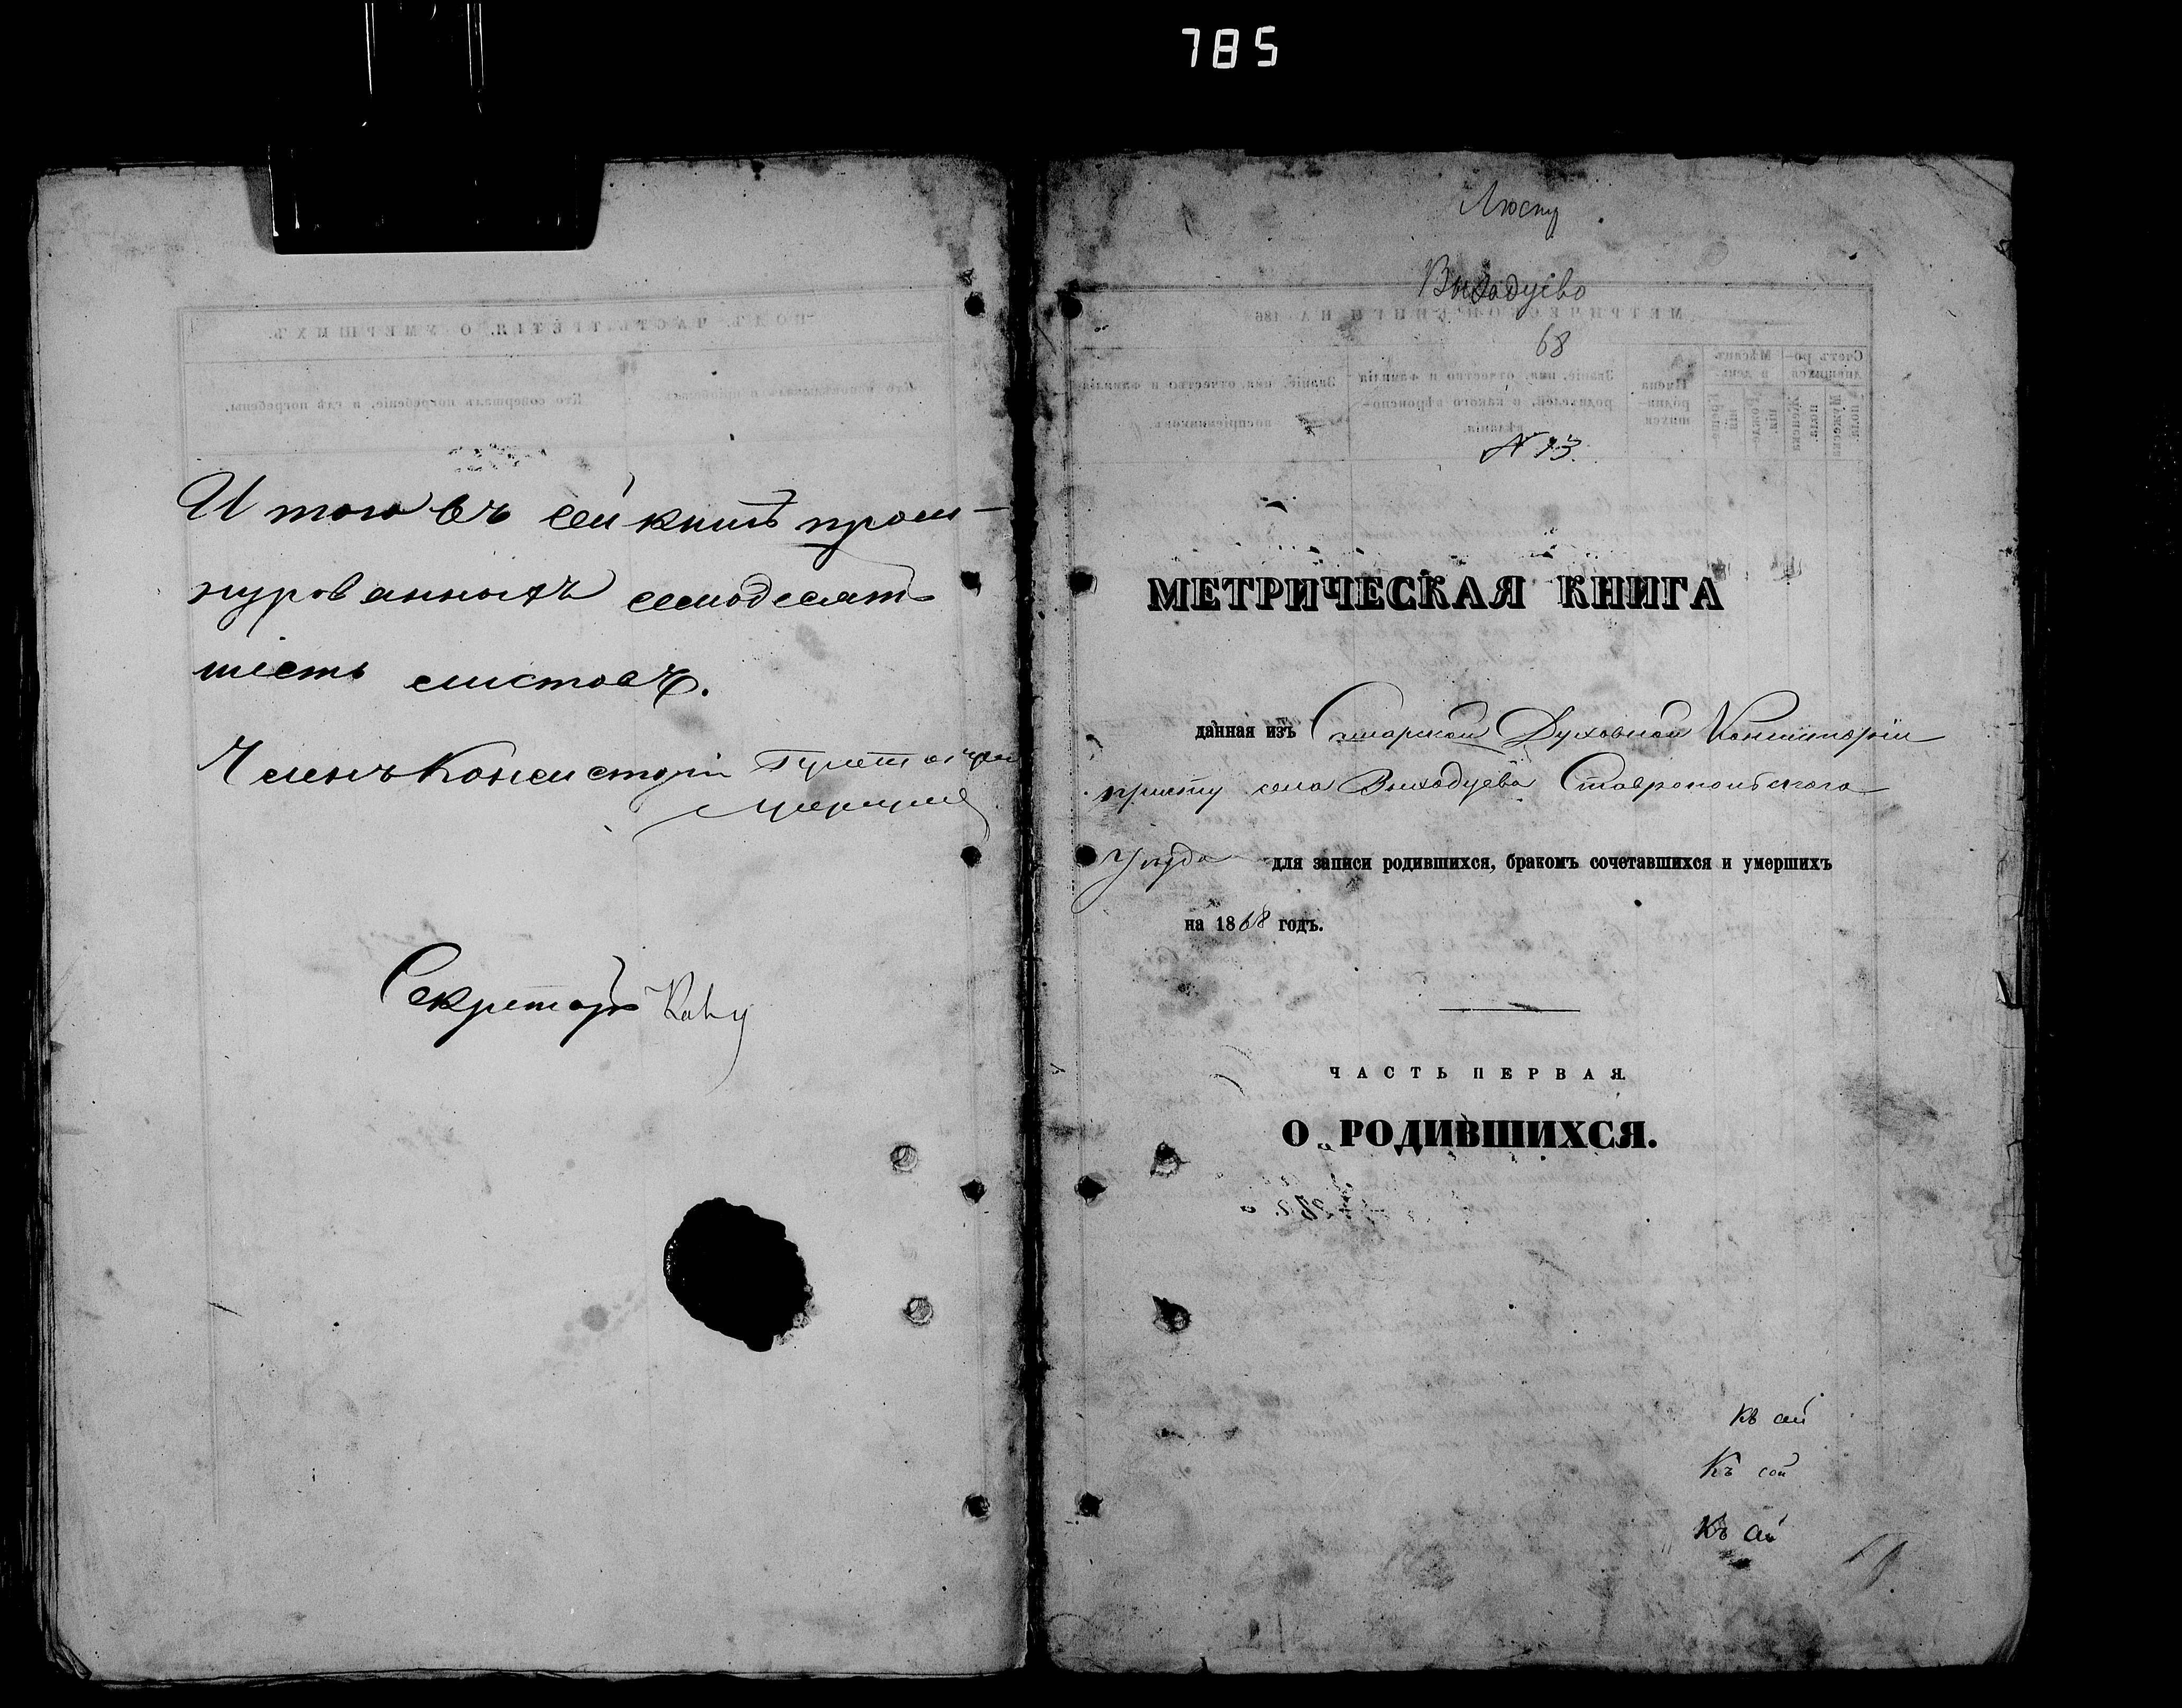 785
Итого въ сей книгѣ прош-
нурованныхъ семьдесятъ
шесть листовъ.
Членъ Консисторіи
Секретарь
Выходцево
68
№ 13.
МЕТРИЧЕСКАЯ КНИГА
данная изъ Самарской Духовной Консисторіи
причту села Выходцева Ставропольскаго
Уѣзда для записи родившихся, бракомъ сочетавшихся и умершихъ
на 1868 годъ.
ЧАСТЬ ПЕРВАЯ
О РОДИВШИХСЯ.
Къ
Къ сей
Къ